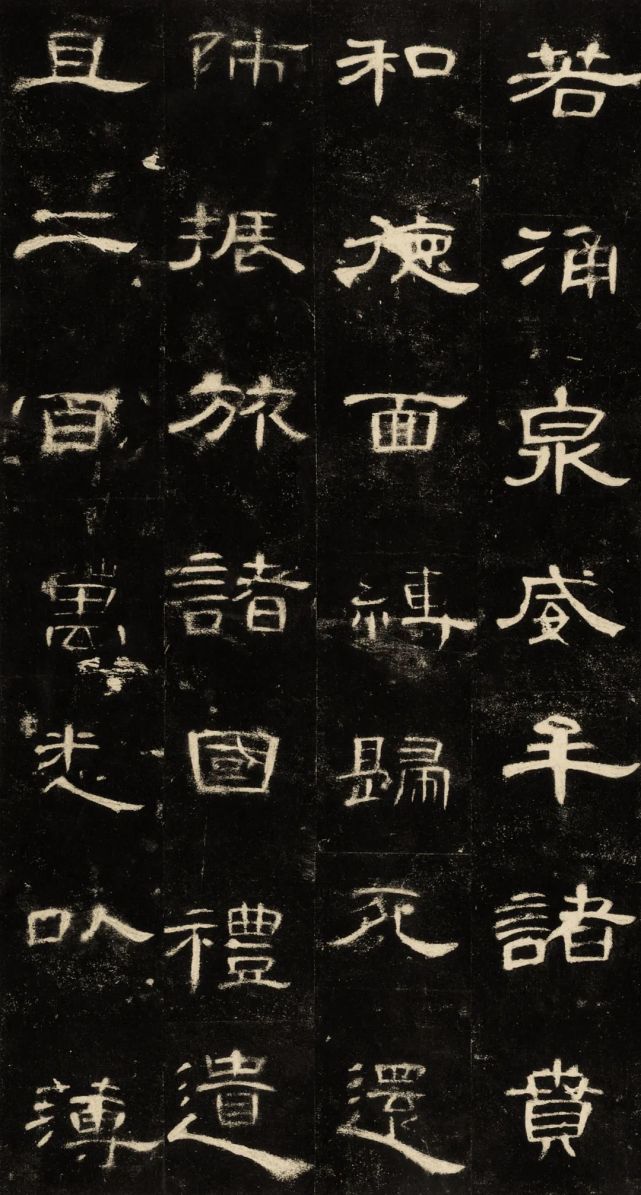 若涌泉威牟諸賁
和德面縛歸死還
師振旅諸國禮遺
且二百萬悉以薄